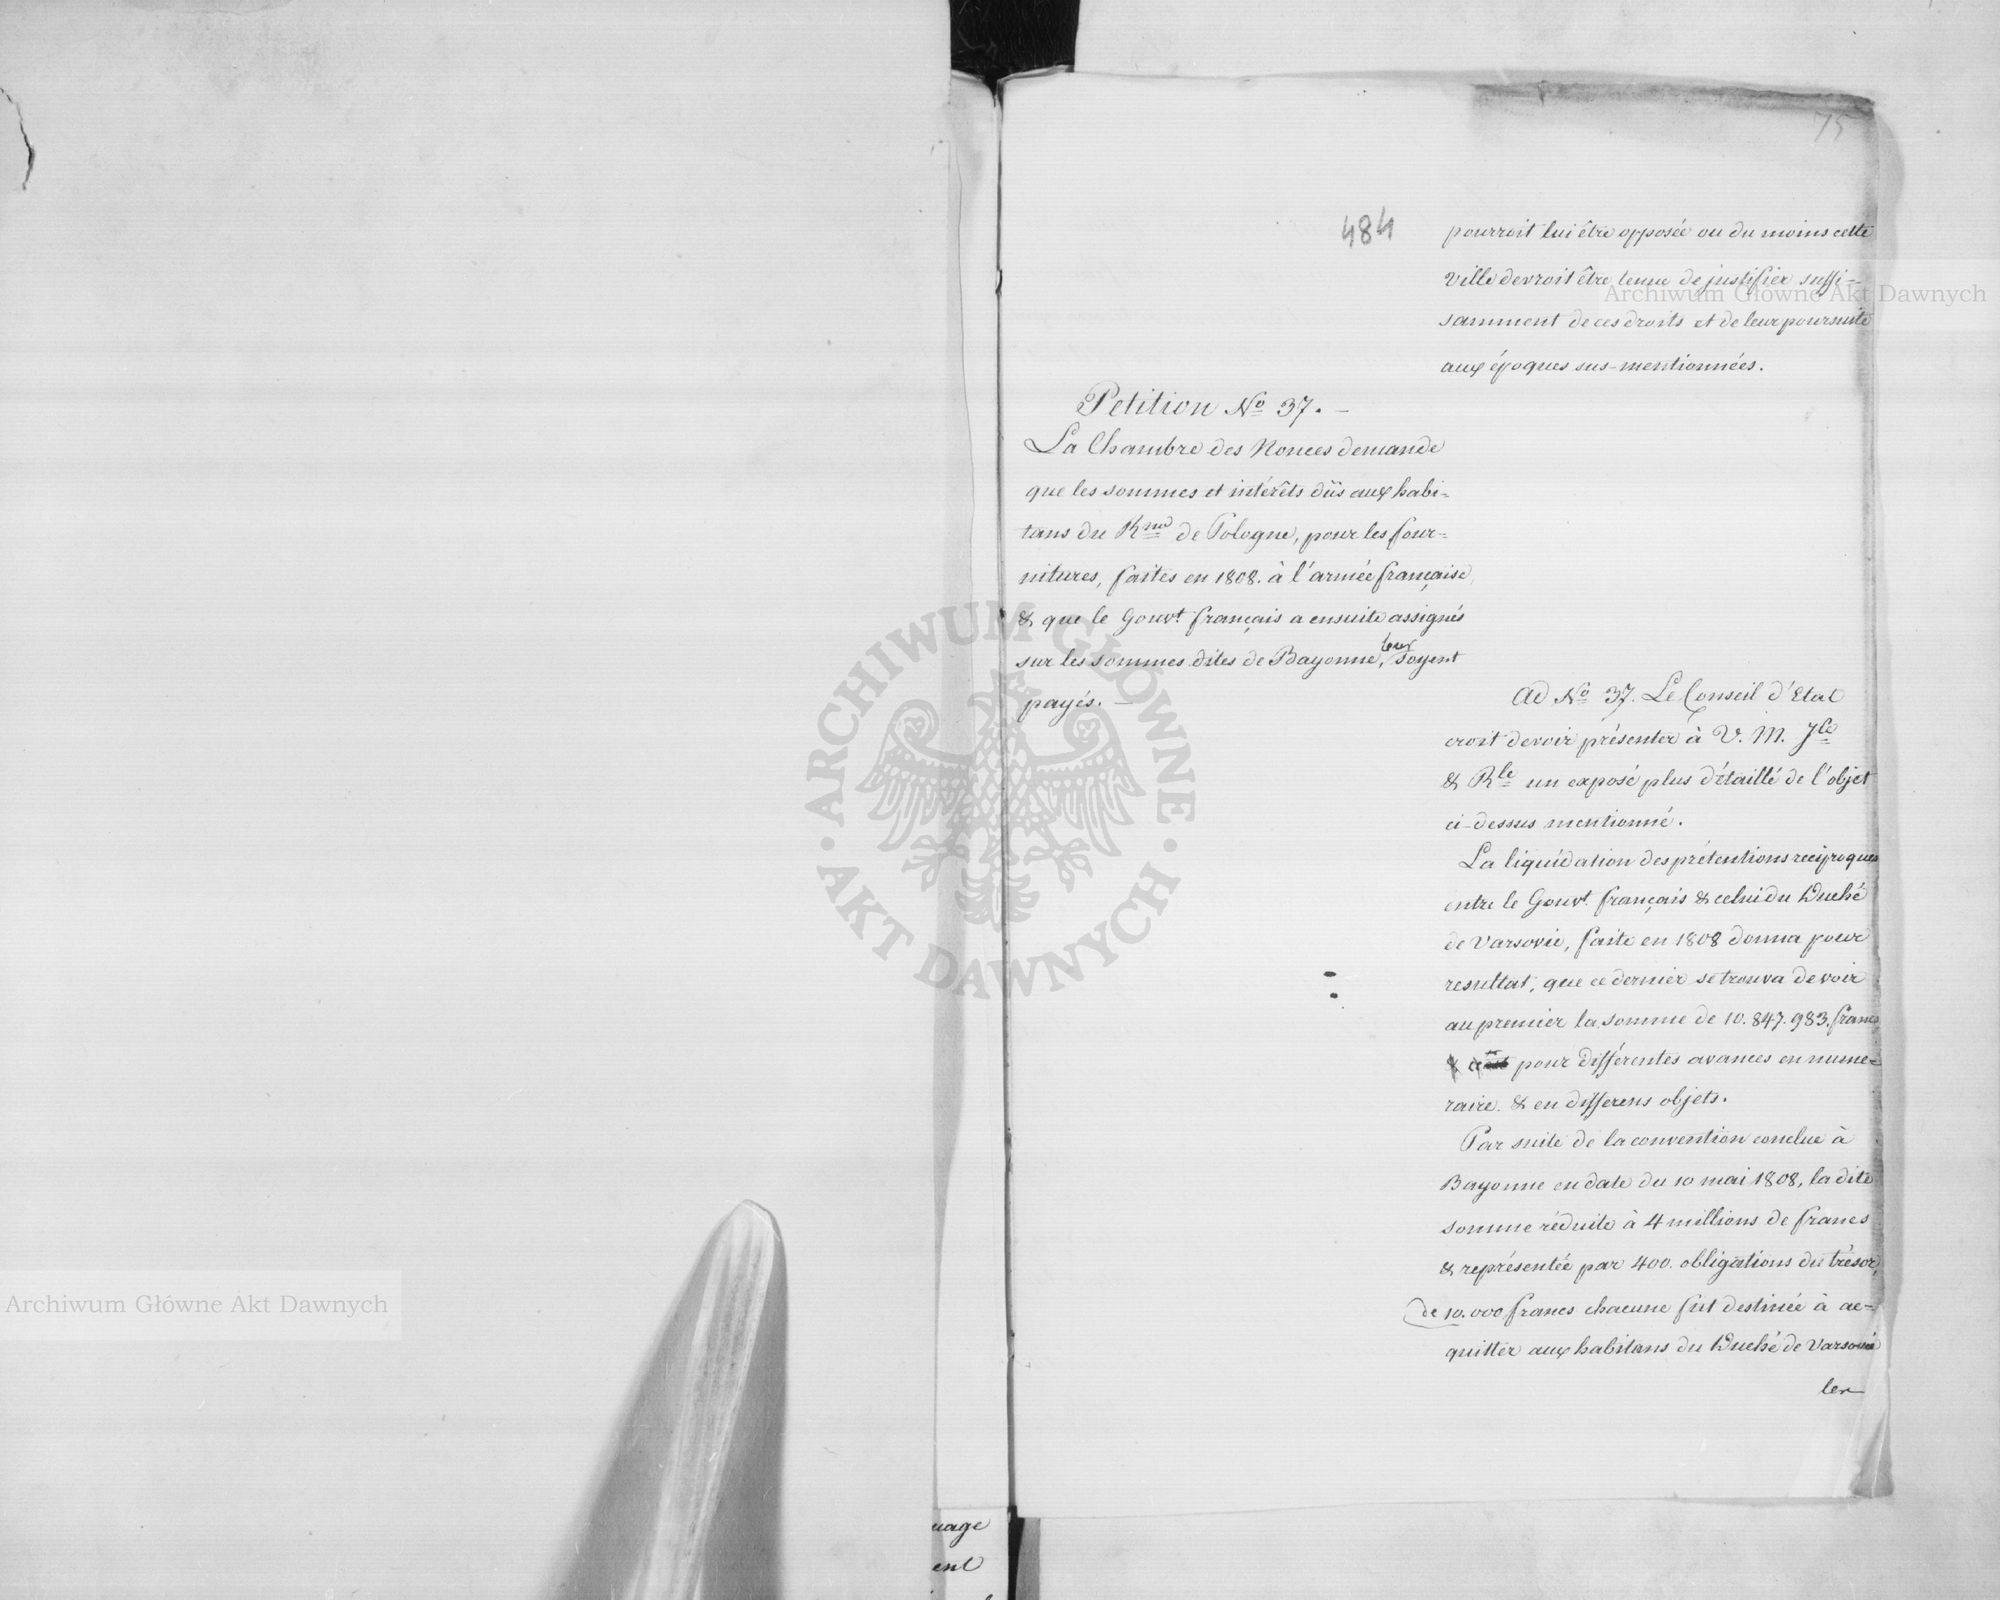 75
484
pourroit lui être opposée ou du moins cette
Ville devroit être tenue de justifier suffi-
samment de ces droits et de leur poursuite
aux époques sus-mentionnées.
Petition No 37. -
La Chambre des Nonces demande
que les sommes et intérêts dûs aux habi-
tans du Rme de Pologne, pour les four-
nitures, faites en 1808. à l'armée française,
& que le Gouvt français a ensuite assignés
sur les sommes dites de Bayonne, leur soyent
payés. -
Ad No 37. Le Conseil d'Etat
croit devoir présenter à V. M. Jle
& Rle un exposé plus détaillé de l'objet
ci-dessus mentionné.
La liquidation des prétentions reciproques
entre le Gouvt français & celui du Duché
de Varsovie, faite en 1808 donna pour
resultat, que ce dernier se trouva devoir
au premier la somme de 10.847.983. francs
pour différentes avances en nume-
raire & en differens objets.
Par suite de la convention conclue à
Bayonne en date du 10 mai 1808, la dite
somme réduite à 4 millions de francs
& représentée par 400. obligations du trésor,
de 10.000 francs chacune fut destinée à ac-
quitter aux habitans du Duché de Varsovie
les
uage
ent
Archiwum Główne Akt Dawnych
Archiwum Główne Akt Dawnych
ARCHIWUM GŁÓWNE
AKT DAWNYCH